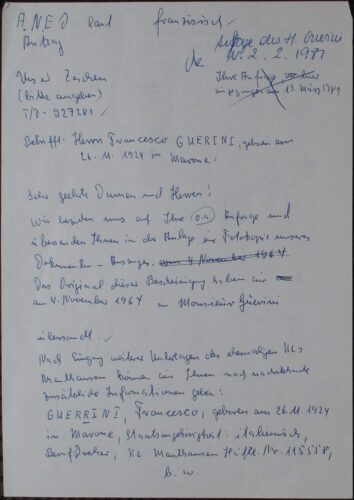 A.N.E.D land französisch
Antrag
Anfrage des H. Guerini
v. 2. 2. 1981
Unser Zeichen
Ihre Anfrage
eingegangen am 13. März 1981
(bitte angeben)
T/D - 927281
Betrifft: Herrn Francesco GUERINI, geboren am
26.11.1924 in Marone
Sehr geehrte Damen und Herren!
Wir beziehen uns auf Ihre o.a. Anfrage und
übersenden Ihnen in der Anlage eine Fotokopie unseres
Dokumenten-Auszuges vom 4 November 1964
Das Original dieser Bescheinigung haben wir
am 4. November 1964 an Monsieur Guerini
übersandt.
Nach Eingang weiterer Unterlagen des ehemaligen KLs
Mauthausen können wir Ihnen noch nachstehende
zusätzliche Informationen geben:
GUERRINI, Francesco, geboren am 26.11.1924
in Marone, Staatsangehörigkeit: italienisch,
Beruf: Dreher, KL. Mauthausen Häftl. Nr. 115558,
b. w